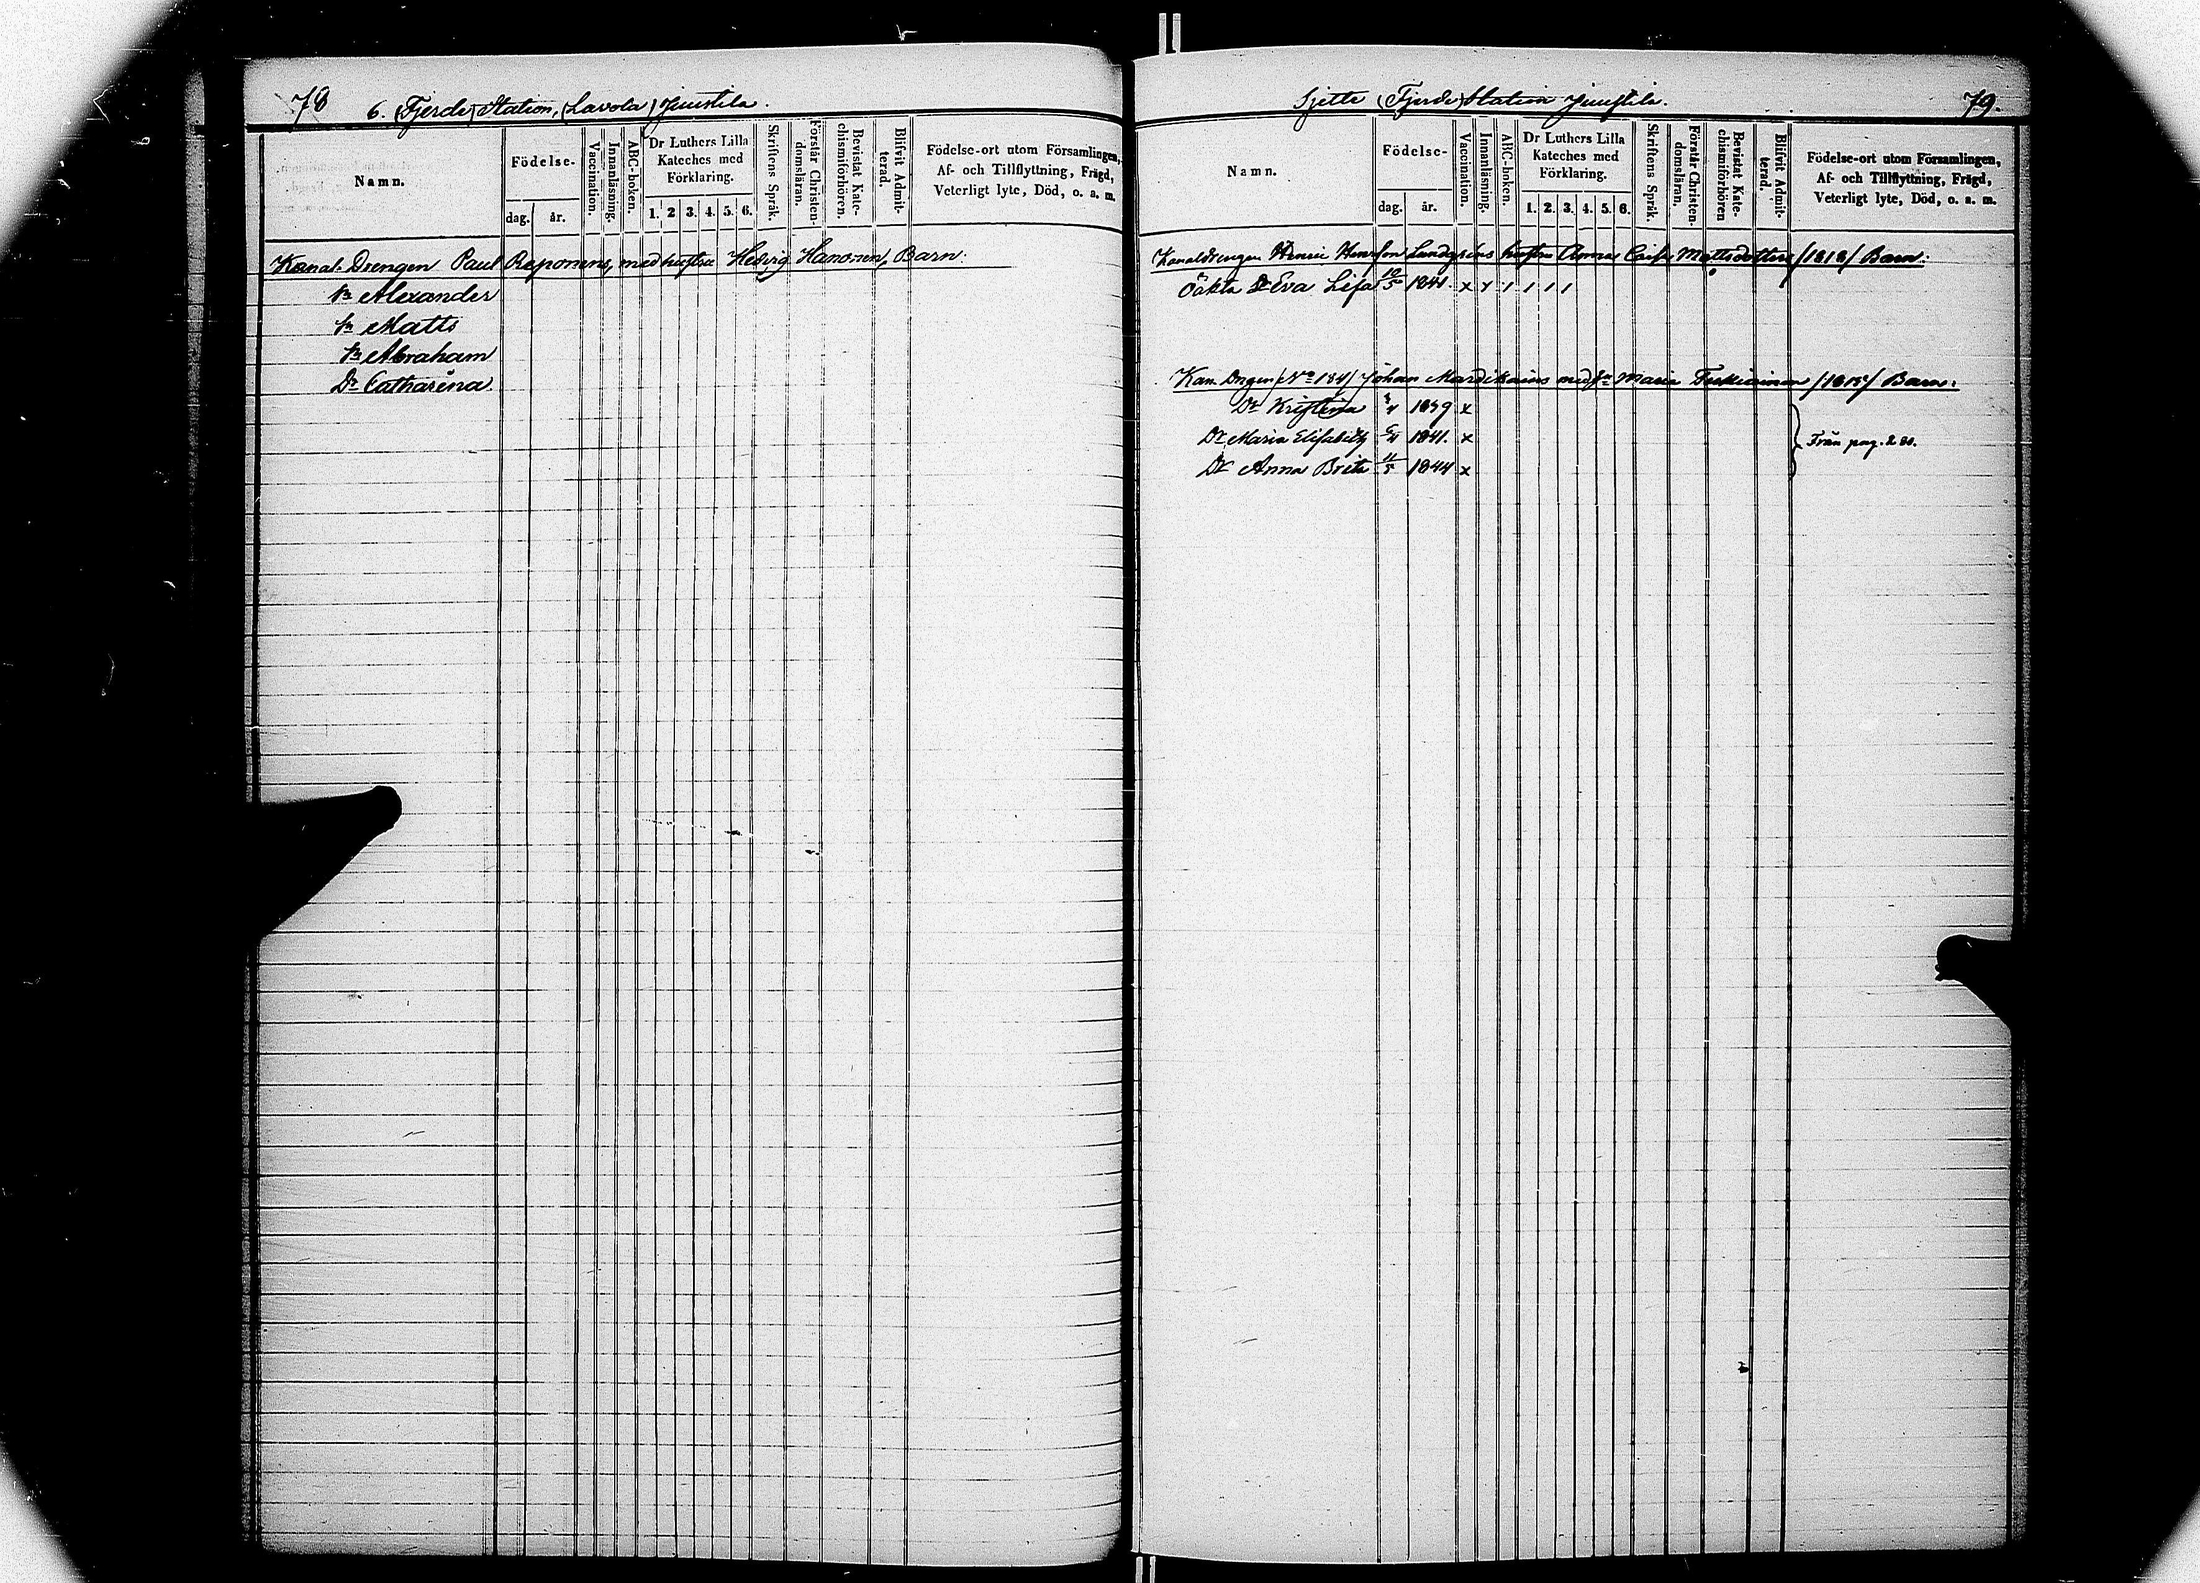 78
6. (Fjerde) Station, (Lavola) Juustila.
Namn.
Födelse-
dag.
år.
Vaccination.
Innanläsning.
ABC-boken.
Dr Luthers Lilla
Kateches med
Förklaring.
1. 2 3. 4. 5. 6.
Skriftens Språk.
Förstår Christen-
domsläran.
Bevistat Kate-
chismiförhören.
Blifvit Admit-
terad.
Födelse-ort utom Församlingen,
Af- och Tillflyttning, Frägd,
Veterligt lyte, Död, o. a. m.
Kanal-Drengen Paul Reponens, med hustru Hedvig Hanonen, Barn:
Sn Alexander
Sn Matts
Sn Abraham
Dr Catharina
Sjette (Fjerde) Station Juustila.
79.
Namn.
Födelse-
dag.
år.
Vaccination.
Innanläsning.
ABC-boken.
Dr Luthers Lilla
Kateches med
Förklaring.
1. 2. 3. 4. 5. 6.
Skriftens Språk.
Förstår Christen-
domsläran.
Bevistat Kate-
chismiförhören
Blifvit Admit-
terad.
Födelse-ort utom Församlingen,
Af- och Tillflyttning, Frägd,
Veterligt lyte, Död, o. a. m.
Kanaldrengen Henric Lundgréns hustru Anna Mattsdotters /1818/ Barn:
Oäkta Dr Eva Lisa 10/5 1841. x x / / / / /
Kan. Drngen /No 184/ Johan med Maria /1815/ Barn:
Dr Kristina 1839 x
Dr Maria Elisabeth 1841. x
Dr Anna Brita 11/5 1844 x
Från pag. 280.